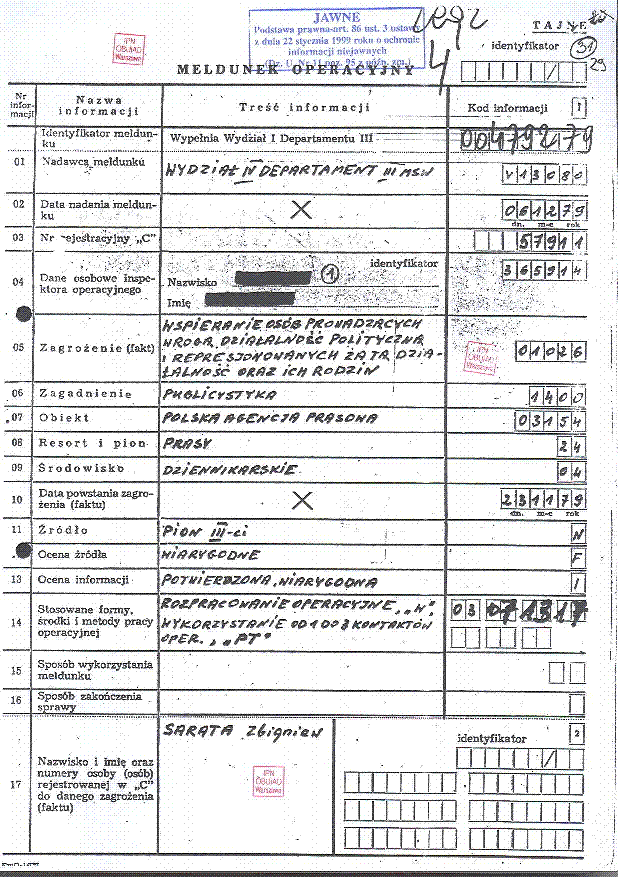 JAWNE
Podstawa prawna-art. 86 ust. 3 ustawy
z dnia 22 stycznia 1999 roku o ochronie
informacji niejawnych
(Dz. U. Nr 11 poz. 95 z późn. zm.)
IPN
OBUiAD
Warszawa
TAJNE
identyfikator
31
29
4
MELDUNEK OPERACYJNY
Nr informacji
Nazwa informacji
Treść informacji
Kod informacji 1
Identyfikator meldunku
Wypełnia Wydział I Departamentu III
00479279
01 Nadawca meldunku
WYDZIAŁ IV DEPARTAMENT III MSW
V13080
02 Data nadania meldunku
X
061279
dn. m-c rok
03 Nr rejestracyjny „C"
57911
04 Dane osobowe inspektora operacyjnego
identyfikator
Nazwisko 1
Imię
365914
05 Zagrożenie (fakt)
WSPIERANIE OSÓB PROWADZĄCYCH
WROGĄ DZIAŁALNOŚĆ POLITYCZNĄ
I REPRESJONOWANYCH ZA TĄ DZIA-
ŁALNOŚĆ ORAZ ICH RODZIN
IPN
OBUiAD
Warszawa
01026
06 Zagadnienie
PUBLICYSTYKA
1400
07 Obiekt
POLSKA AGENCJA PRASOWA
03154
08 Resort i pion
PRASY
24
09 Środowisko
DZIENNIKARSKIE
04
10 Data powstania zagrożenia (faktu)
X
231179
dn. m-c rok
11 Źródło
PION III-ci
N
Ocena źródła
WIARYGODNE
F
13 Ocena informacji
POTWIERDZONA, WIARYGODNA
1
14 Stosowane formy, środki i metody pracy operacyjnej
ROZPRACOWANIE OPERACYJNE, „W",
WYKORZYSTANIE OD 1 DO 3 KONTAKTÓW
OPER., „PT"
03 071317
15 Sposób wykorzystania meldunku
16 Sposób zakończenia sprawy
17 Nazwisko i imię oraz numery osoby (osób) rejestrowanej w „C" do danego zagrożenia (faktu)
SARATA Zbigniew
identyfikator 2
IPN
OBUiAD
Warszawa